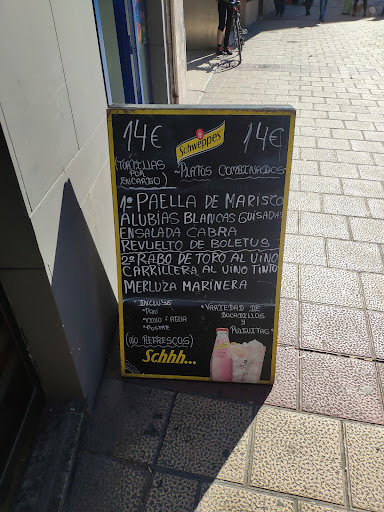 14€ Schweppes 14€
(TORTILLAS
POR
ENCARGO)
~PLATOS COMBINADOS
1º PAELLA DE MARISCO
ALUBIAS BLANCAS GUISADAS
ENSALADA CABRA
REVUELTO DE BOLETUS
2º RABO DE TORO AL VINO
CARRILLERA AL VINO TINTO
MERLUZA MARINERA
- INCLUYE
• PAN
• VINO O AGUA
• POSTRE
(NO REFRESCOS)
• VARIEDAD DE
BOCADILLOS
Y
PULGUITAS
Schhh...